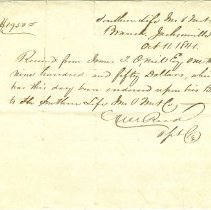 $1950
Southern Life Ins & Trust
Branch, Jacksonville
Oct 11. 1841.
Received from James T. O'Neill Esq. One
nine hundred and fifty Dollars, which
has this day been endorsed upon his
to the Southern Life Ins & Trust Co.